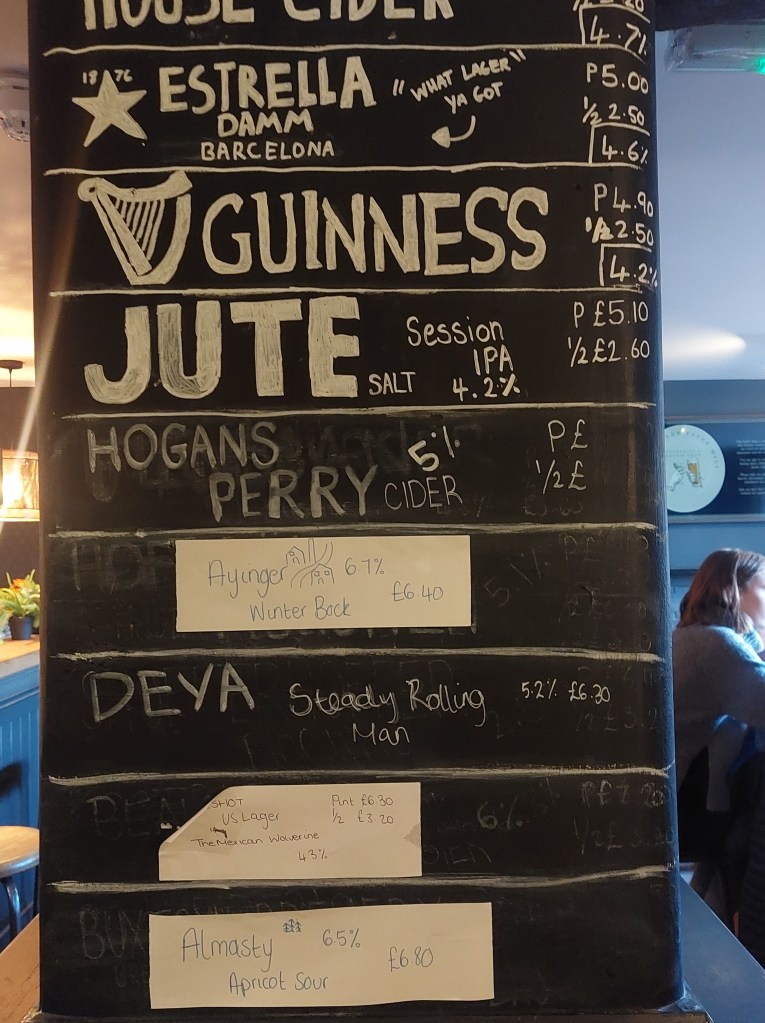 HOUSE CIDER
4.7%
1876
ESTRELLA
DAMM
BARCELONA
"WHAT LAGER"
YA GOT
P5.00
½ 2.50
4.6%
GUINNESS
P4.90
½ 2.50
4.2%
JUTE
SALT
Session
IPA
4.2%
P £5.10
½ £2.60
HOGANS
PERRY CIDER
5%
P £
½ £
Ayinger 6.7%
Winter Bock
£6.40
DEYA Steady Rolling
Man
5.2% £6.30
US Lager
The Mexican Wolverine
4.3%
Pint £6.30
½ £3.20
6%
Almasty 6.5%
Apricot Sour
£6.80